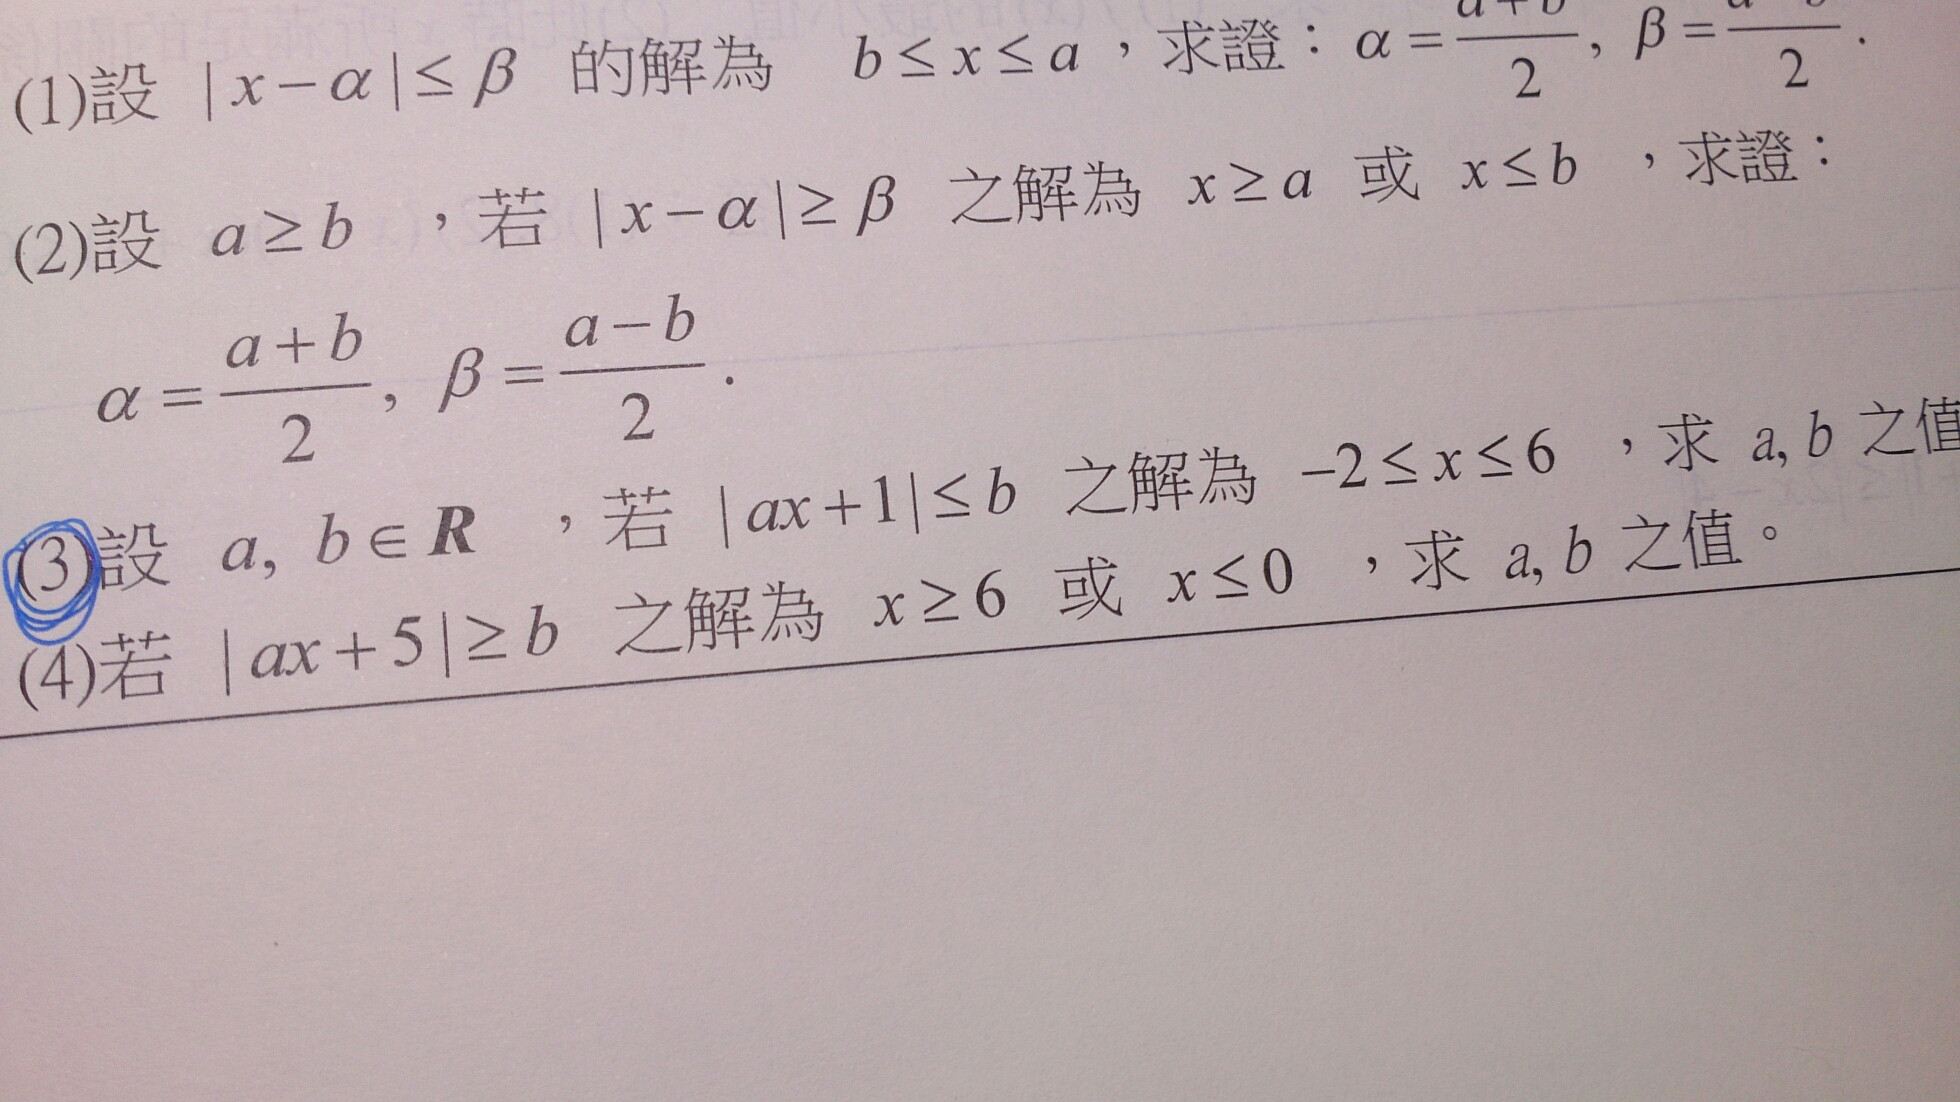 (1)設 |x−α|≤β 的解為 b≤x≤a，求證：α=a+b/2, β=a−b/2.
(2)設 a≥b ，若 |x−α|≥β 之解為 x≥a 或 x≤b ，求證：
α=a+b/2, β=a−b/2.
(3)設 a, b∈R ，若 |ax+1|≤b 之解為 −2≤x≤6 ，求 a, b 之值
(4)若 |ax+5|≥b 之解為 x≥6 或 x≤0 ，求 a, b 之值。